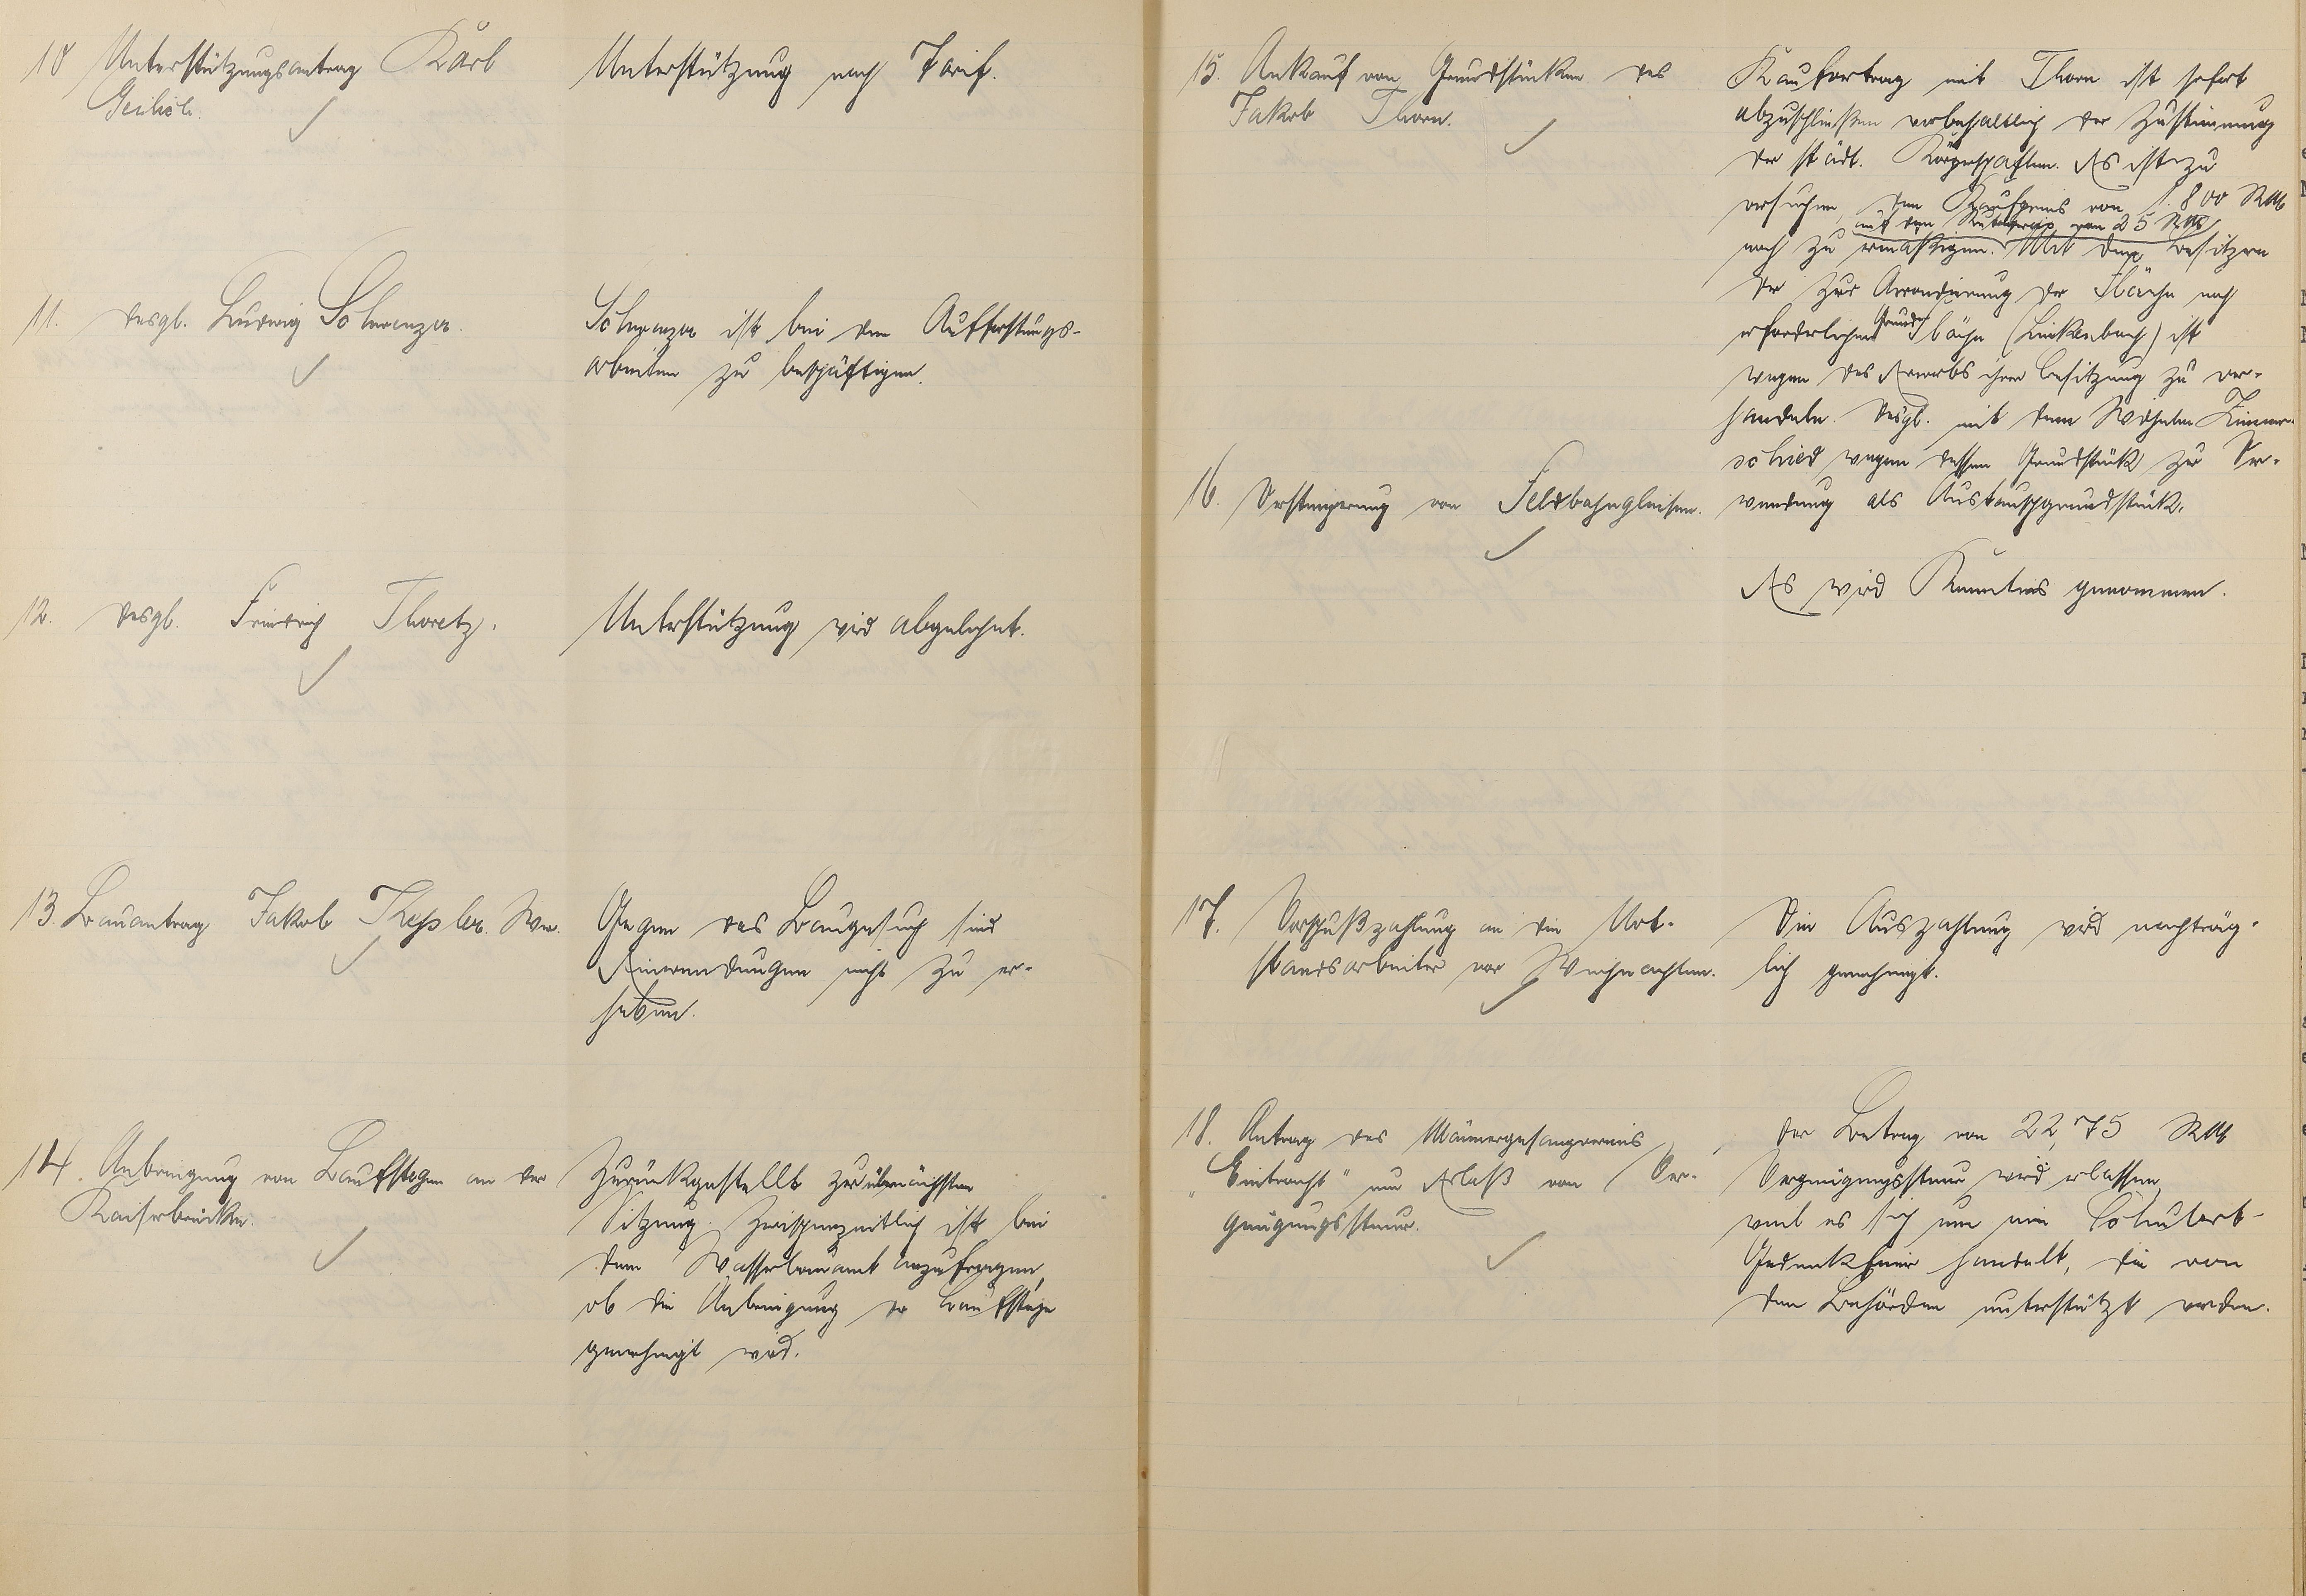 10 Unterstützungsantrag Karl
Unterstützung nach Tarif.
11. desgl. Ludwig Schwenzer.
Schwenzer ist bei den Aufforstungs-
arbeiten zu beschäftigen.
12. desgl. Friedrich Thoretz.
Unterstützung wird abgelehnt.
13. Bauantrag Jakob Kessler. Ww.
Gegen das Baugesuch sind
Einwendungen nicht zu er-
heben.
14. Anbringung von Laufstegen an der
Kaiserbrücke.
Zurückgestellt zur übernächsten
Sitzung. Zwischenzeitlich ist bei
dem Wasserbauamt anzufragen,
ob die Anbringung der Laufstege
genehmigt wird.
15. Ankauf von Grundstücken des
Jakob Thorn.
Kaufvertrag mit Thorn ist sofort
abzuschließen vorbehaltlich der Zustimmung
der städt. Körperschaften. Es ist zu
versuchen, den Kaufpreis von 1.800 RM
auf den Rutenpreis von 25 RM
noch zu ermäßigen. Mit den Besitzern
der zur Arrondierung der Fläche noch
erforderlichen Grundfläche (Linkenbach) ist
wegen des Erwerbs ihrer Besitzung zu ver-
handeln. Desgl. mit dem Wilhelm Zimmer-
schied wegen dessen Grundstück zur Ver-
wendung als Austauschgrundstück.
16. Versteigerung von Feldbahngleisen.
Es wird Kenntnis genommen.
17. Vorschußzahlung an die Not-
standsarbeiter vor Weihnachten.
Die Auszahlung wird nachträg-
lich genehmigt.
18. Antrag des Männergesangvereins
"Eintracht" um Erlaß von Ver-
gnügungssteuer.
Der Betrag von 22,75 RM
Vergnügungssteuer wird erlassen,
weil es sich um eine Schubert-
Gedenkfeier handelt, die von
den Behörden unterstützt werden.